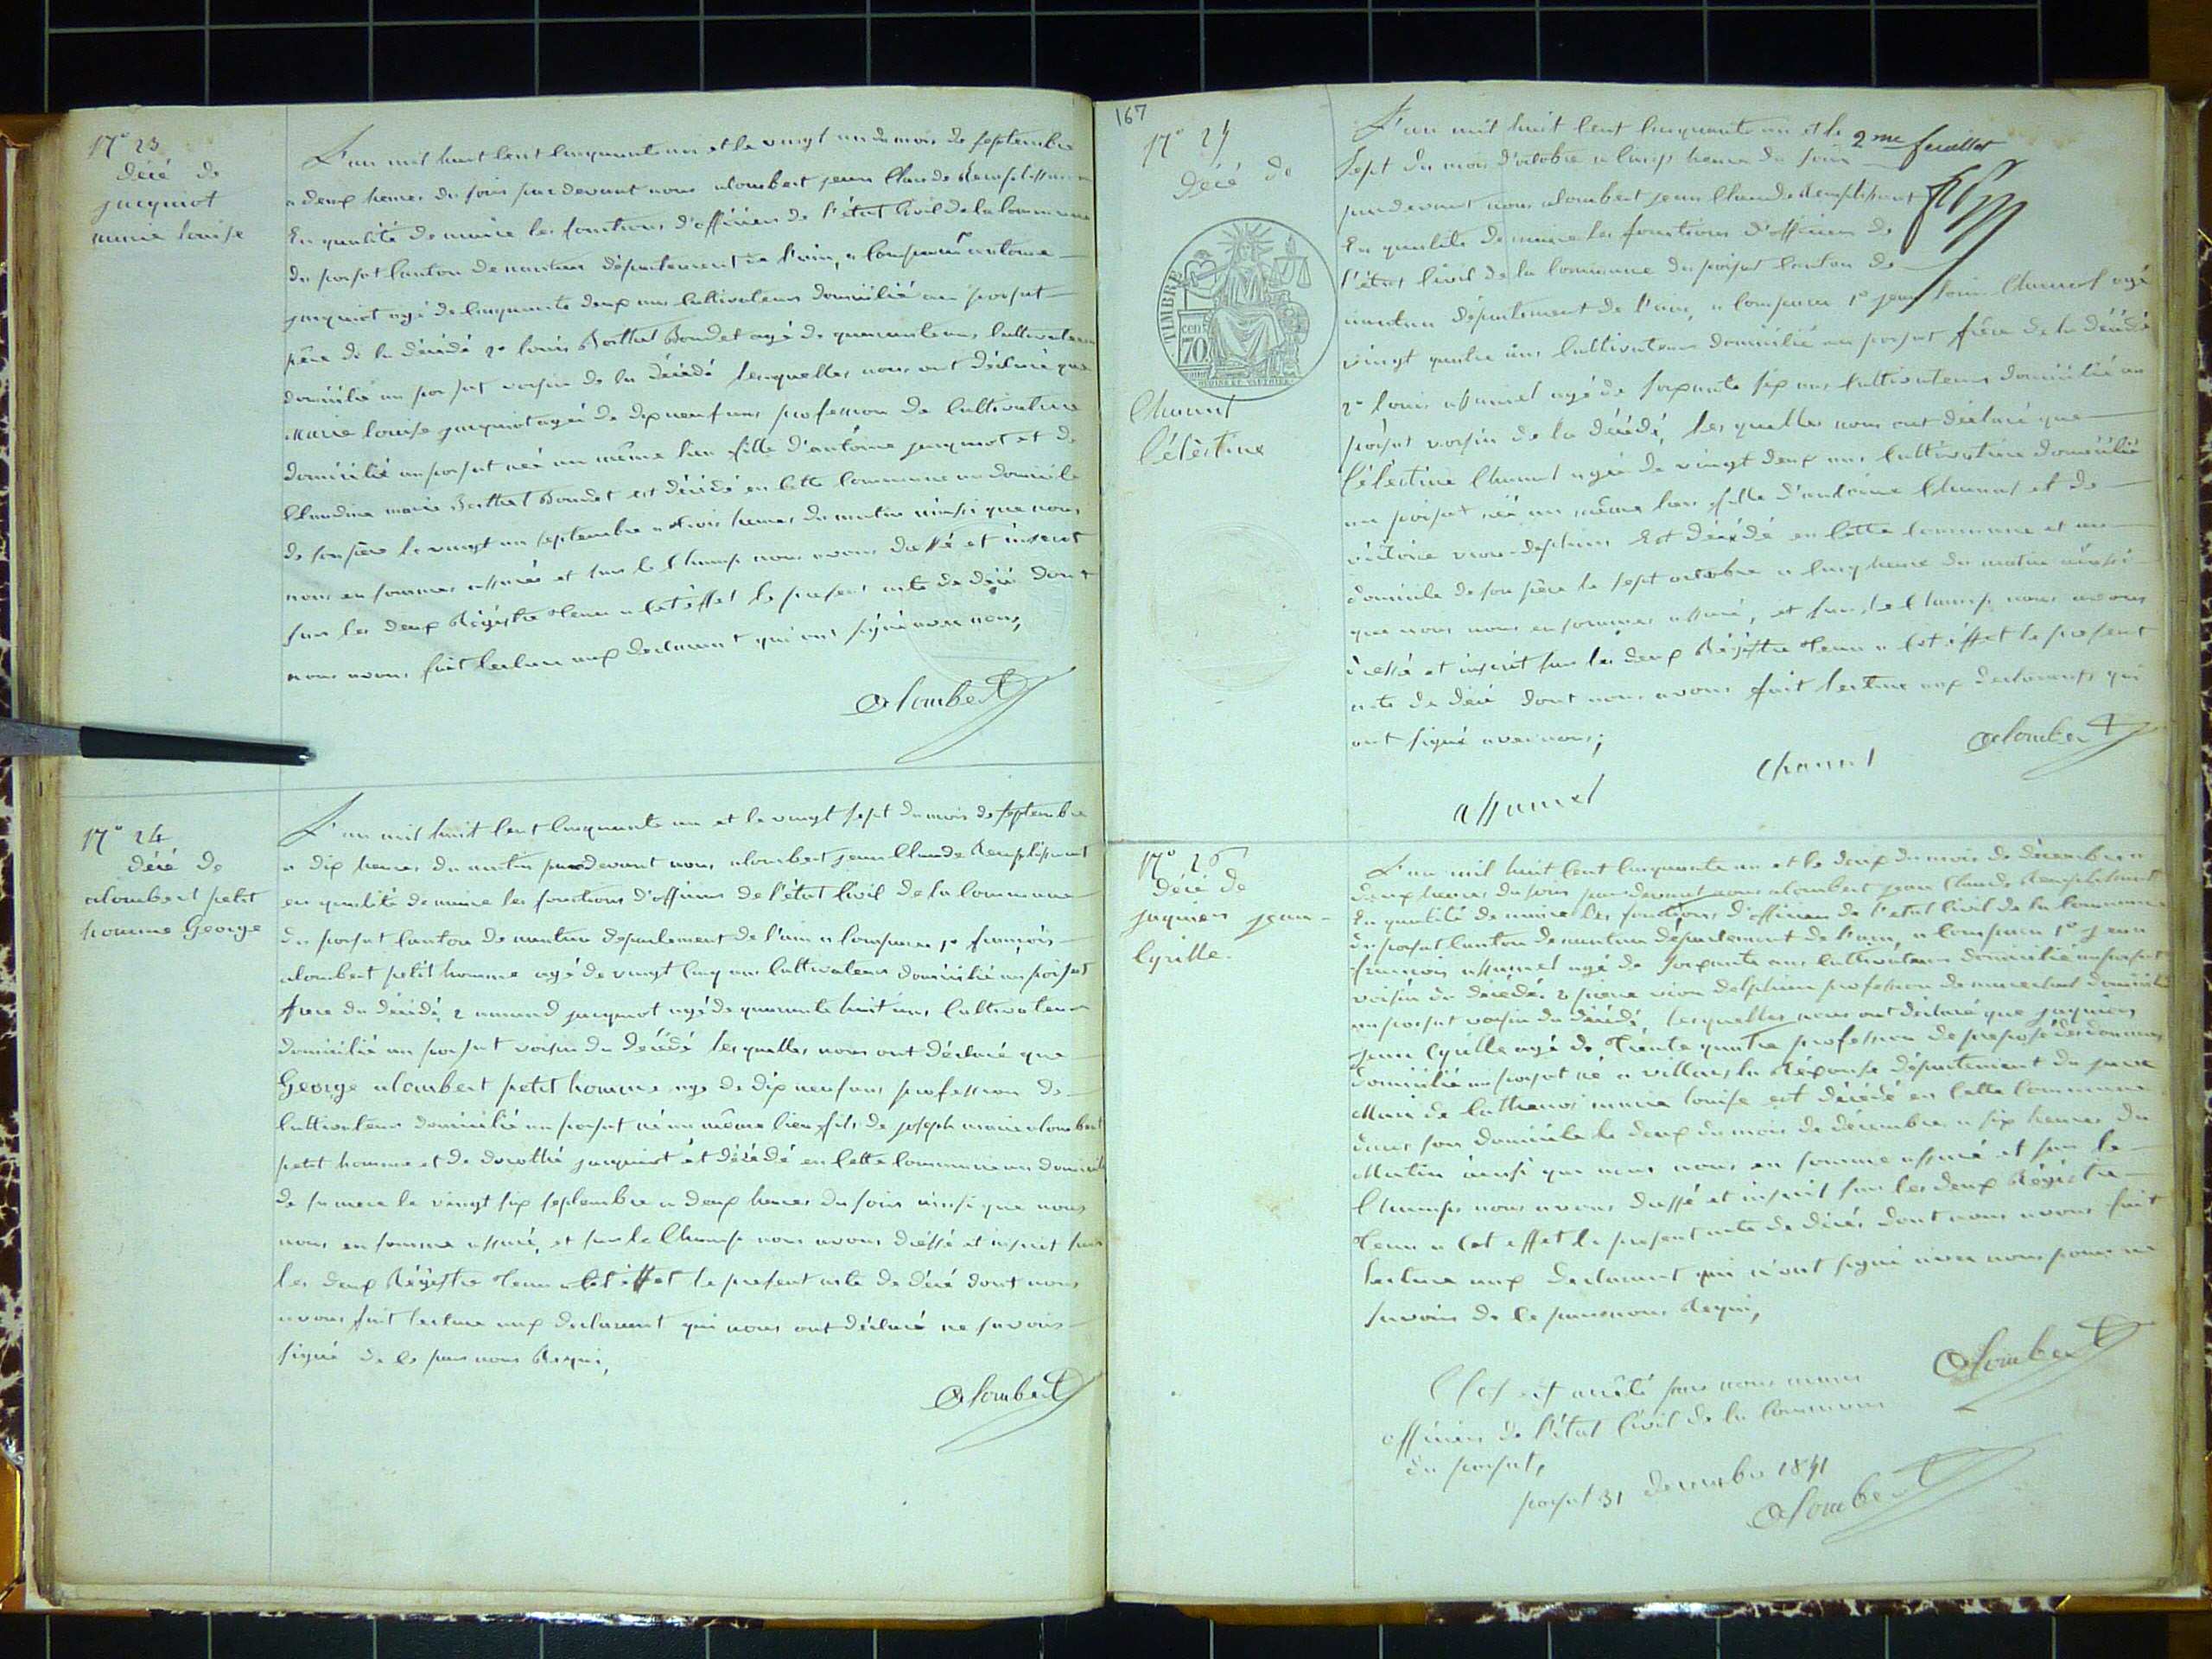 N° 23
décé de
jacquiot
marie louise
L'an mil huit cent cinquante un et le vingt un du mois de septembre
a deux heures du soir par devant nous alombert jean Claude Remplissant
En qualité de maire les fonctions d'officier de l'état Civil de la Commune
du poizat Canton de nantua département de l'ain, a comparu antoine
jacquiot agé de cinquante deux ans Cultivateur domicilié au poizat
père de la décédé 2° louis Berthet Bondet agé de quarante ans Cultivateur
domicilié au poizat voisin de la décédé lesquelles nous ont déclaré que
Marie louise jacquiot agé de dix neuf ans profession de Cultivatrice
domicilié au poizat né au même lieu fille d'antoine jacquiot et de
Claudine marie Berthet Bondet est décédé en Cette Commune au domicile
de son père le vingt un septembre a trois heures du matin ainsi que nous
nous en sommes assurés et sur le Champ nous avons dressé et inscrit
sur les deux Régistre tenu a Cet éffet le present acte de décé dont
nous avons fait lecture aux declarant qui ont signé avec nous,
Alombert
N° 24
décé de
alombert petit
homme George
L'an mil huit Cent Cinquante un et le vingt sept du mois de septembre
a dix heures du matin par devant nous alombert jean Claude Remplissant
en qualité de maire les fonctions d'officier de l'état Civil de la Commune
du poizat Canton de nantua departement de l'ain a comparu 1° françois
alombert petit homme agé de vingt cinq ans Cultivateur domicilié au poizat
frere du décédé, 2 amand jacquiot agé de quarante huit ans Cultivateur
domicilié au poizat voisin du décédé lesquelles nous ont déclaré que
George alombert petit homme age de dix neuf ans profession de
Cultivateur domicilié au poizat né au même lieu fils de joseph marie alombert
petit homme et de dorothé jacquiot ét décédé en Cette Commune au domicile
de sa mere le vingt six septembre a deux heures du soir ainsi que nous
nous en somme assuré, et sur le Champ nous avons dréssé et inscrit sur
les deux Régistre tenu a Cet éffet le present acte de décé dont nous
avons fait lecture aux declarant qui nous ont déclaré ne savoir
signé de ce par nous Requi,
Alombert
167
N° 25
Décé de
TIMBRE
70
cent
Chanel
Célèstine
L'an mil huit Cent Cinquante un et le
2me feuillet
Sept du mois d'octobre a Cinq heure du soir
par devant nous alombert jean Claude Remplissant
En qualité de maire les fonctions d'officier de
l'état Civil de la Commune du poizat Canton de
nantua département de l'ain, a comparu 1° jean louis Chanel agé
vingt quatre ans Cultivateur domicilié au poizat frère de la décédé
2° louis assumel agé de soixante six ans Cultivateur domicilié au
poizat voisin de la décédé, les quelles nous ont déclaré que
Célestine Chanel agée de vingt deux ans Cultivatrice domicilié
au poizat né au même lieu fille d'antoine Chanel et de
victoire vion-delphin Est décédé en Cette Commune et au
domicile de son père le sept octobre a Cinq heure du matin ainsi
que nous nous en sommes assuré, et sur le Champ nous avons
dressé et inscrit sur les deux Régistre tenu a Cet éffet le present
acte de décé dont nous avons fait lecture aux declarants qui
ont signé avec nous;
Assumel
Chanel
Alombert
N° 26
décé de
jaquiers jean-
Cyrille.
L'an mil huit Cent Cinquante un et le deux du mois de décembre a
deux heures du soir par devant nous alombert jean Claude Remplissant
En qualité de maire les fonctions d'officier de l'état Civil de la Commune
du poizat Canton de nantua département de l'ain, a comparu 1° jean
françois assumel agé de soixante ans Cultivateur domicilié au poizat
voisin du décédé. 2 pierre vion delphin profession de marechal domicilié
au poizat voisin du décédé, lesquelles nous ont déclaré que jaquiers
jean Cyrille agé de trente quatre profession de preposé des douanes
domicilié au poizat né a villars la Réponse département du jura
Mari de Cuthenos marie louise est décédé en Cette Commune
dans son domicile le deux du mois de décembre a six heures du
Matin ainsi que nous nous en somme assuré et sur le
Champ nous avons dressé et inscrit sur les deux Régistre
tenu a Cet effet le present acte de décés dont nous avons fait
lecture aux declarant qui n'ont signé avec nous pour ne
savoir de ce par nous Requi,
Alombert
Clos est arrêté par nous maire
officier de l'état Civil de la Commune
du poizat,
poizat 31 decembre 1851
Alombert